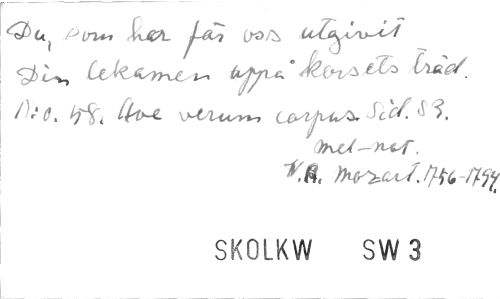 Du, som har för oss utgivit
Din lekamen uppå korsets träd.
N:o. 48. Ave verum corpus. Sid. 83.
mel-not.
W.A. Mozart. 1756-1794.
SKOLKW SW 3